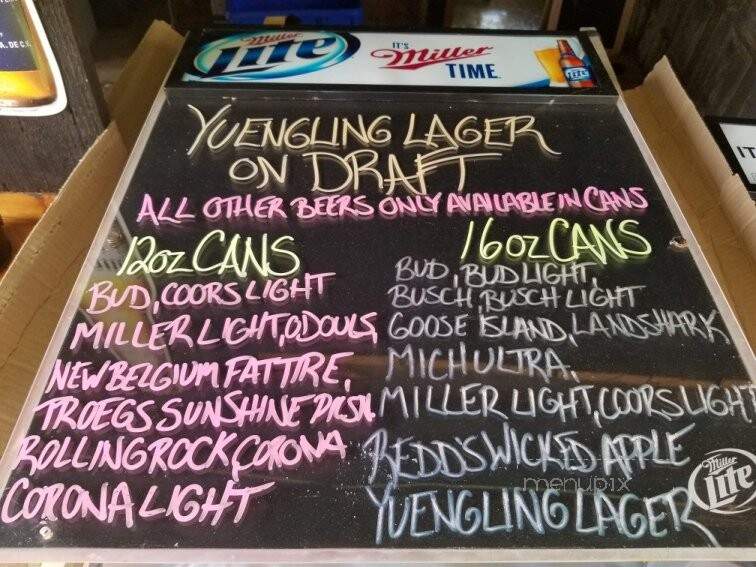 A. DE C.V.
Miller
Lite
IT'S
Miller
TIME
IT
YUENGLING LAGER
ON DRAFT
ALL OTHER BEERS ONLY AVAILABLE IN CANS
12oz CANS
BUD, COORS LIGHT
MILLER LIGHT, ODOULS,
NEW BELGIUM FAT TIRE,
TROEGS SUNSHINE PILSN
ROLLING ROCK, CORONA
CORONA LIGHT
16oz CANS
BUD, BUD LIGHT,
BUSCH, BUSCH LIGHT
GOOSE ISLAND, LANDSHARK
MICH ULTRA,
MILLER LIGHT, COORS LIGHT
REDD'S WICKED APPLE
YUENGLING LAGER
menupix
Miller
Lite